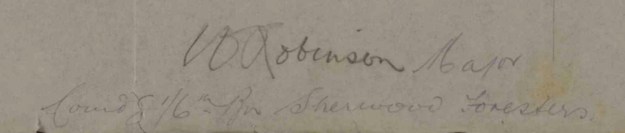 W Robinson Major
Comdg 1/6th Bn Sherwood Foresters.